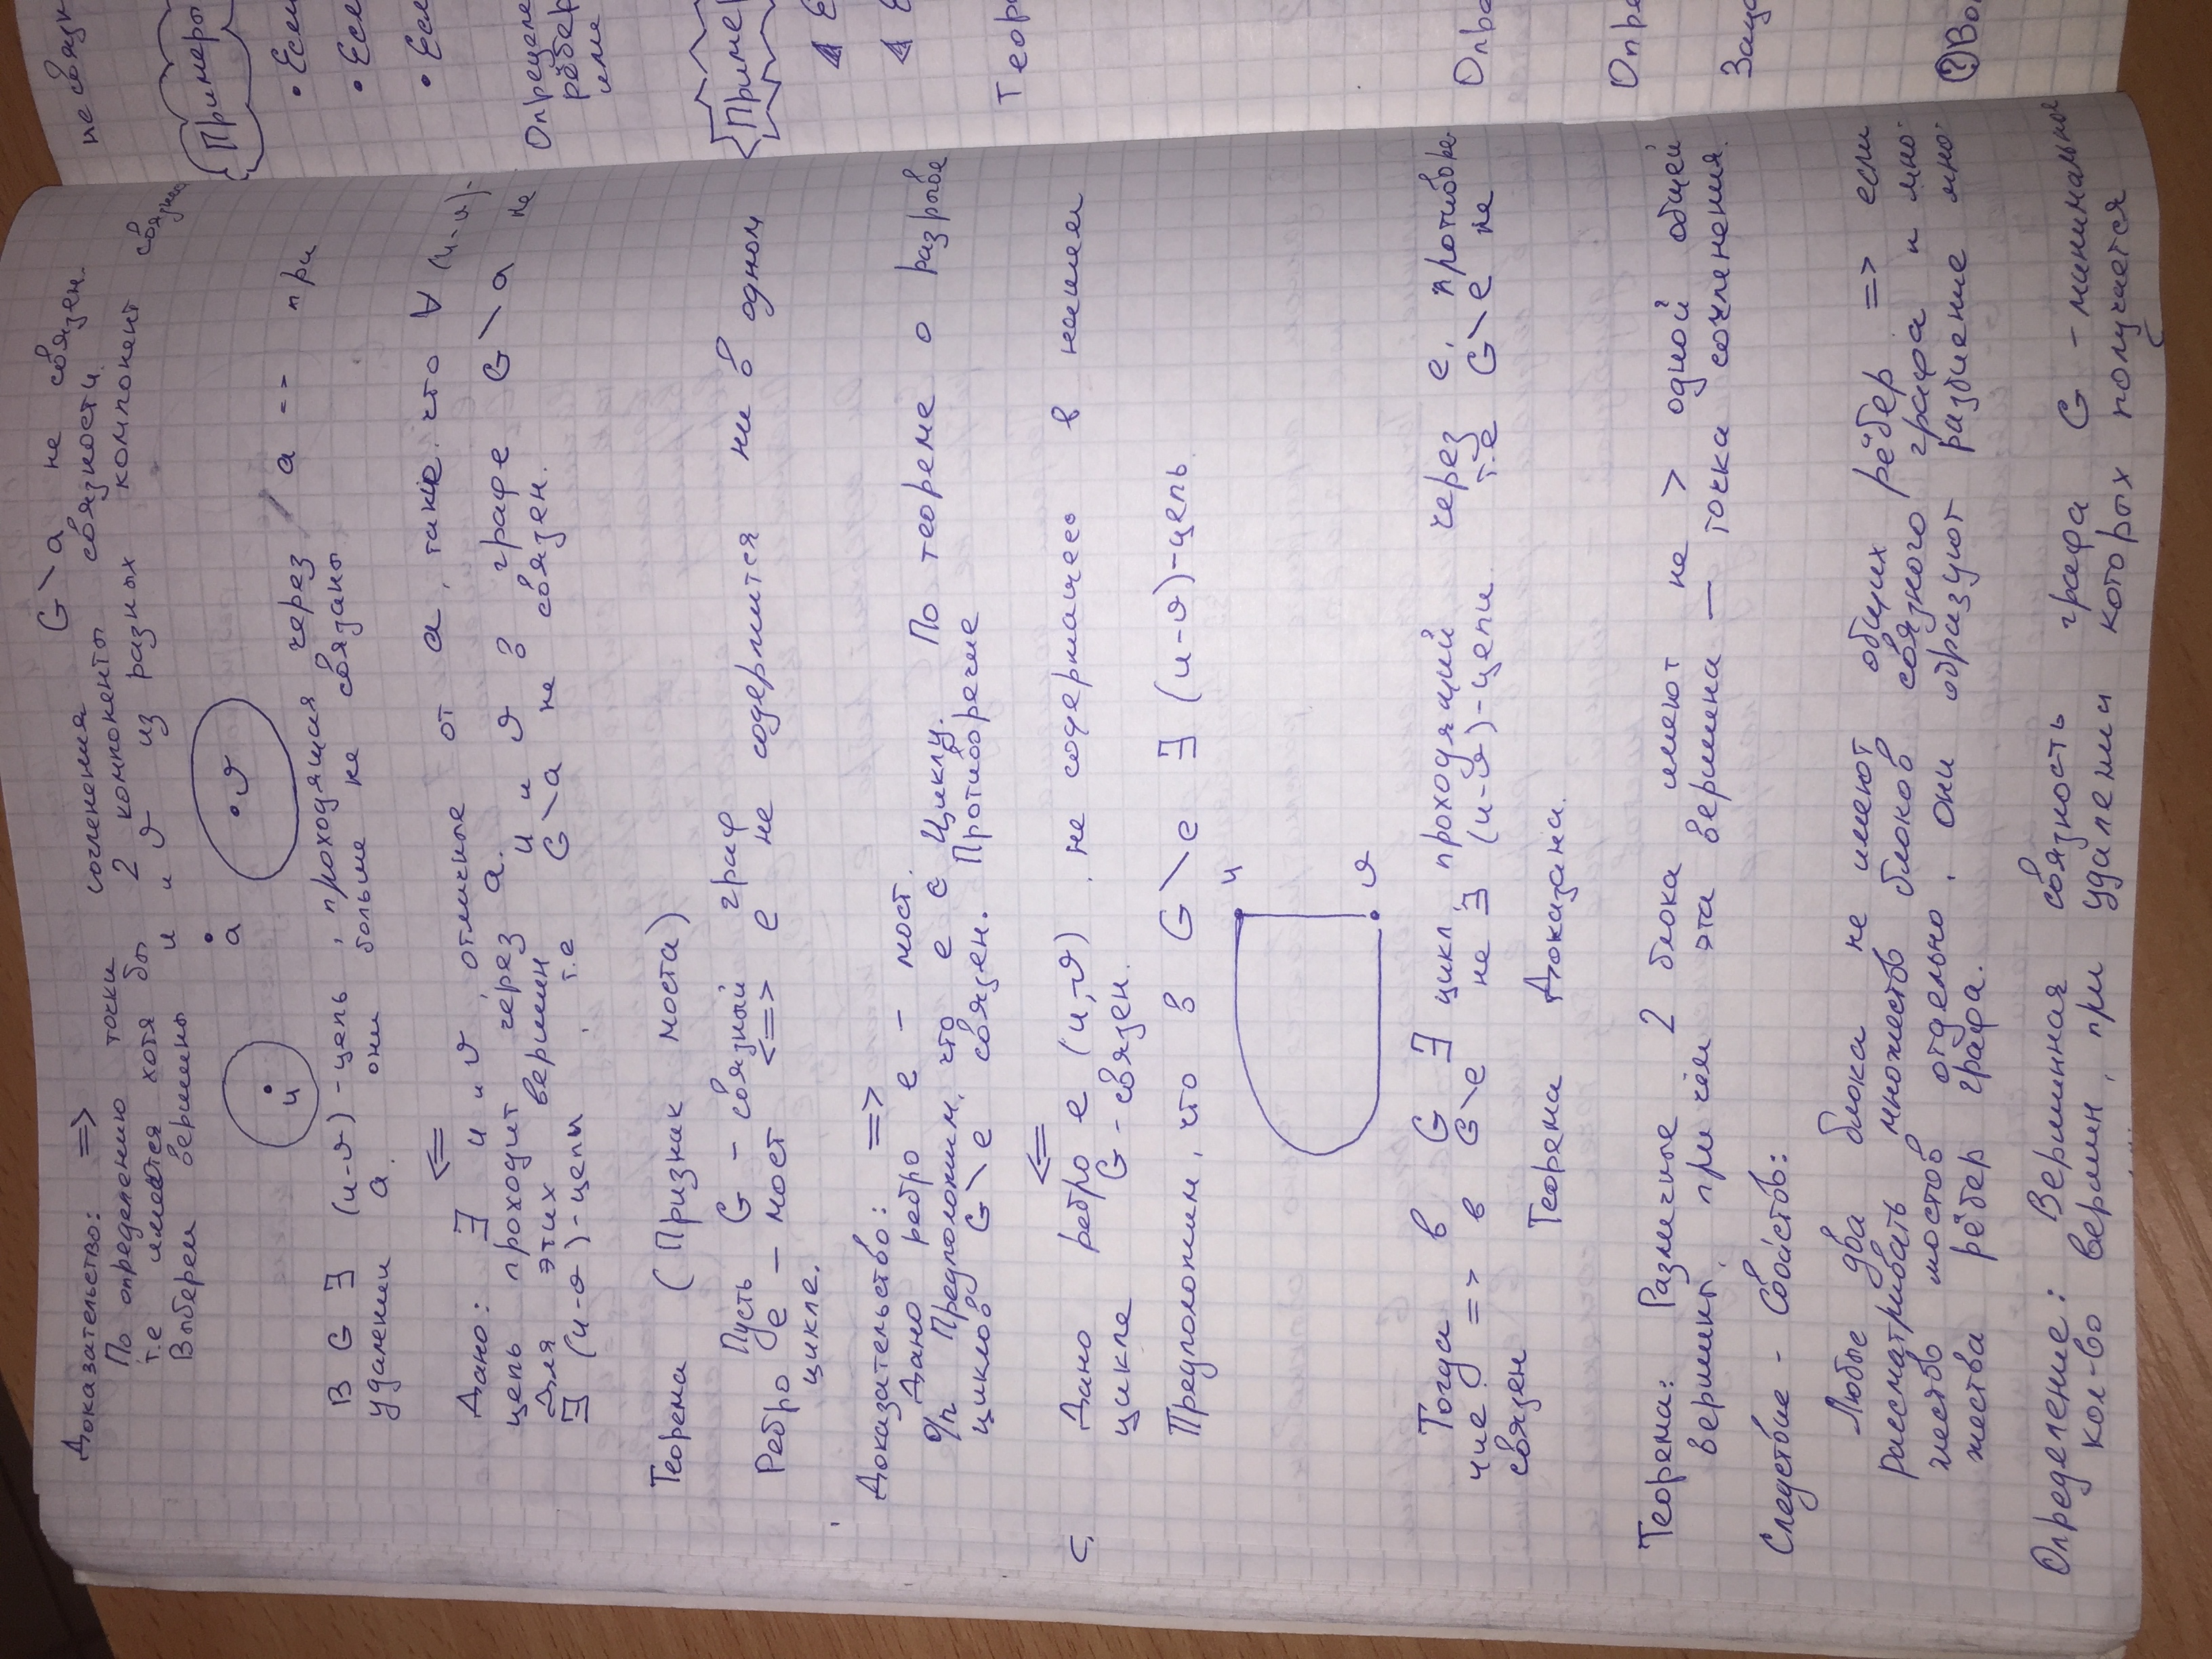 Доказательство: =>
По определению точки сочленения G\a не связен.
т.е имеются хотя бы 2 компоненты связности.
Выберем вершины u и v из разных компонент
a
u
v
В G ∃ (u-v)-цепь, проходящая через a => при
удалении a они больше не связаны
<=
Дано: ∃ u и v, отличные от a, такие, что ∀ (u-v)-
цепь проходит через a.
Для этих вершин u и v в графе G\a не
∃ (u-v)-цепи, т.е G\a не связен.
Теорема (Признак моста)
Пусть G - связный граф
Ребро e - мост <=> e не содержится ни в одном
цикле.
Доказательство: =>
Дано ребро e - мост.
О/п Предположим, что e ∈ Циклу. По теореме о разрыве
циклов G\e связен. Противоречие
<=
Дано ребро e (u,v), не содержащееся в нашем
цикле G-связен.
Предположим, что в G\e ∃ (u-v)-цепь.
u
v
Тогда в G ∃ цикл, проходящий через e, противоре-
чие => в G\e не ∃ (u-v)-цепи т.е G\e не
связен
Теорема Доказана.
Теорема: Различные 2 блока имеют не > одной общей
вершины, причём эта вершина — точка сочленения.
Следствие - Свойств:
Любые два блока не имеют общих рёбер => если
рассматривать множеств блоков связного графа и мно-
жеств мостов отдельно, они образуют разбиение мно-
жества рёбер графа.
Определение: Вершинная связность графа G - минимальное
кол-во вершин, при удалении которых получается
Примеры
• Если
Определе
рёбер
или
Пример
Теор
Опре
Опре